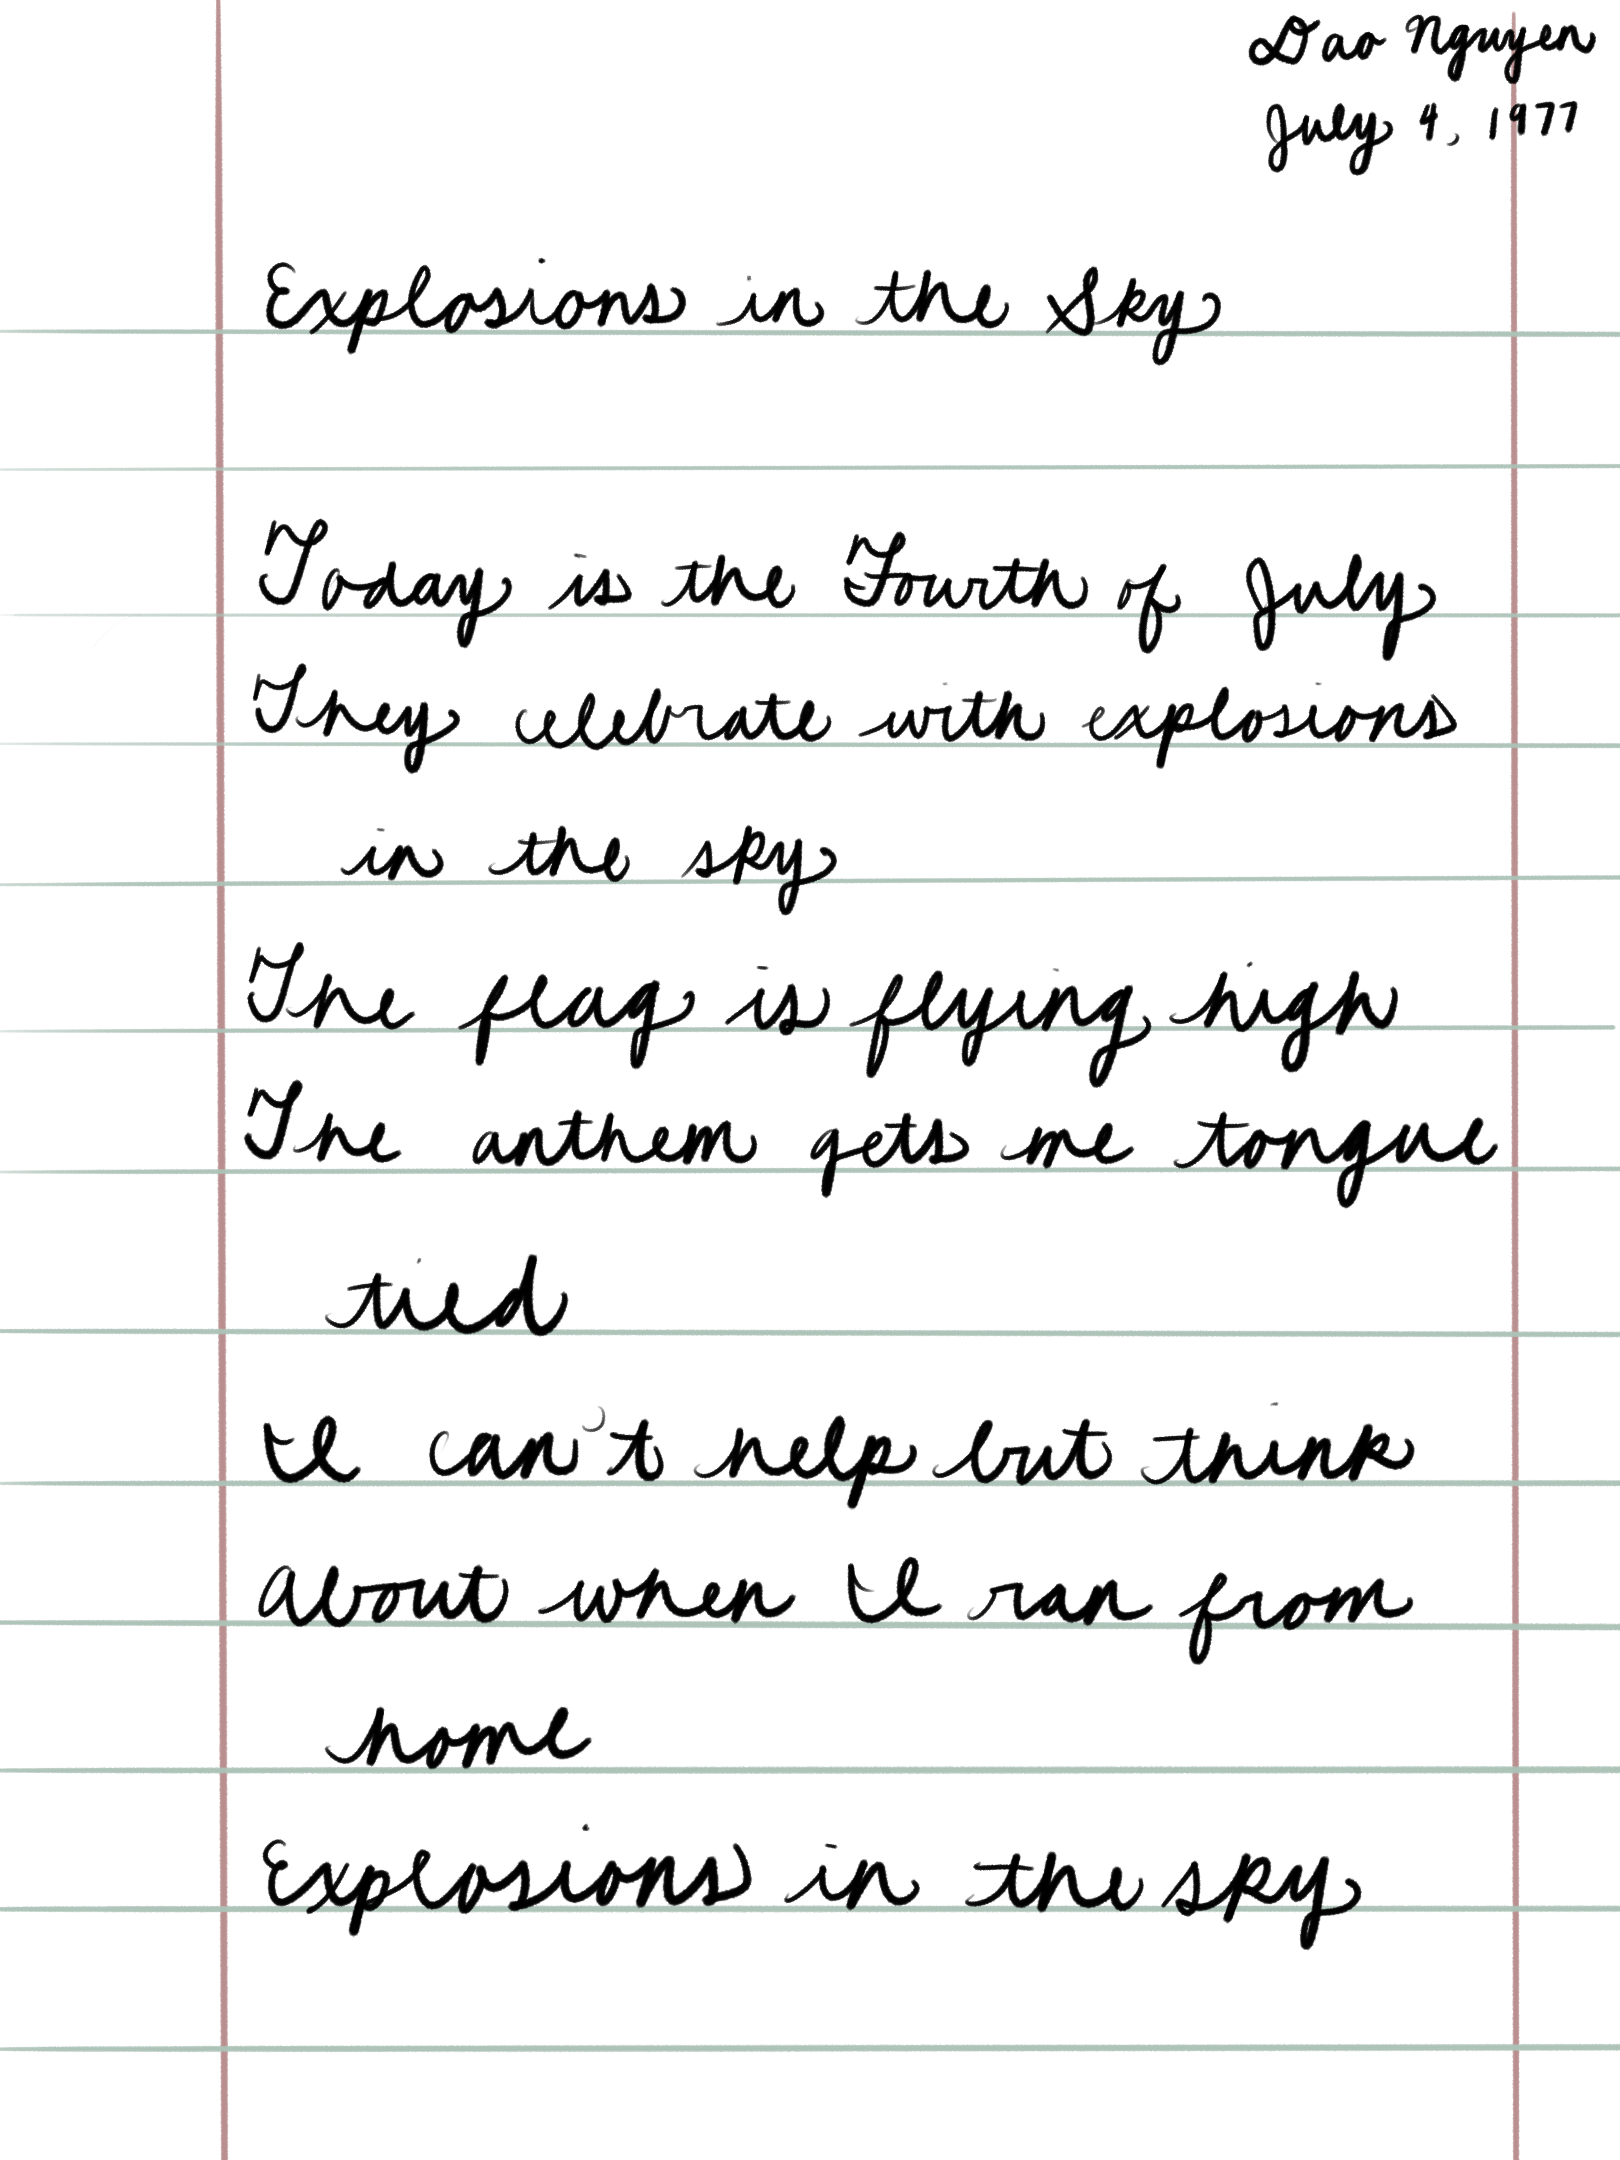 Dao Nguyen
July 4, 1977
Explosions in the Sky
Today is the Fourth of July
They celebrate with explosions
in the sky
The flag is flying high
The anthem gets me tongue
tied
I can't help but think
about when I ran from
home
Explosions in the sky